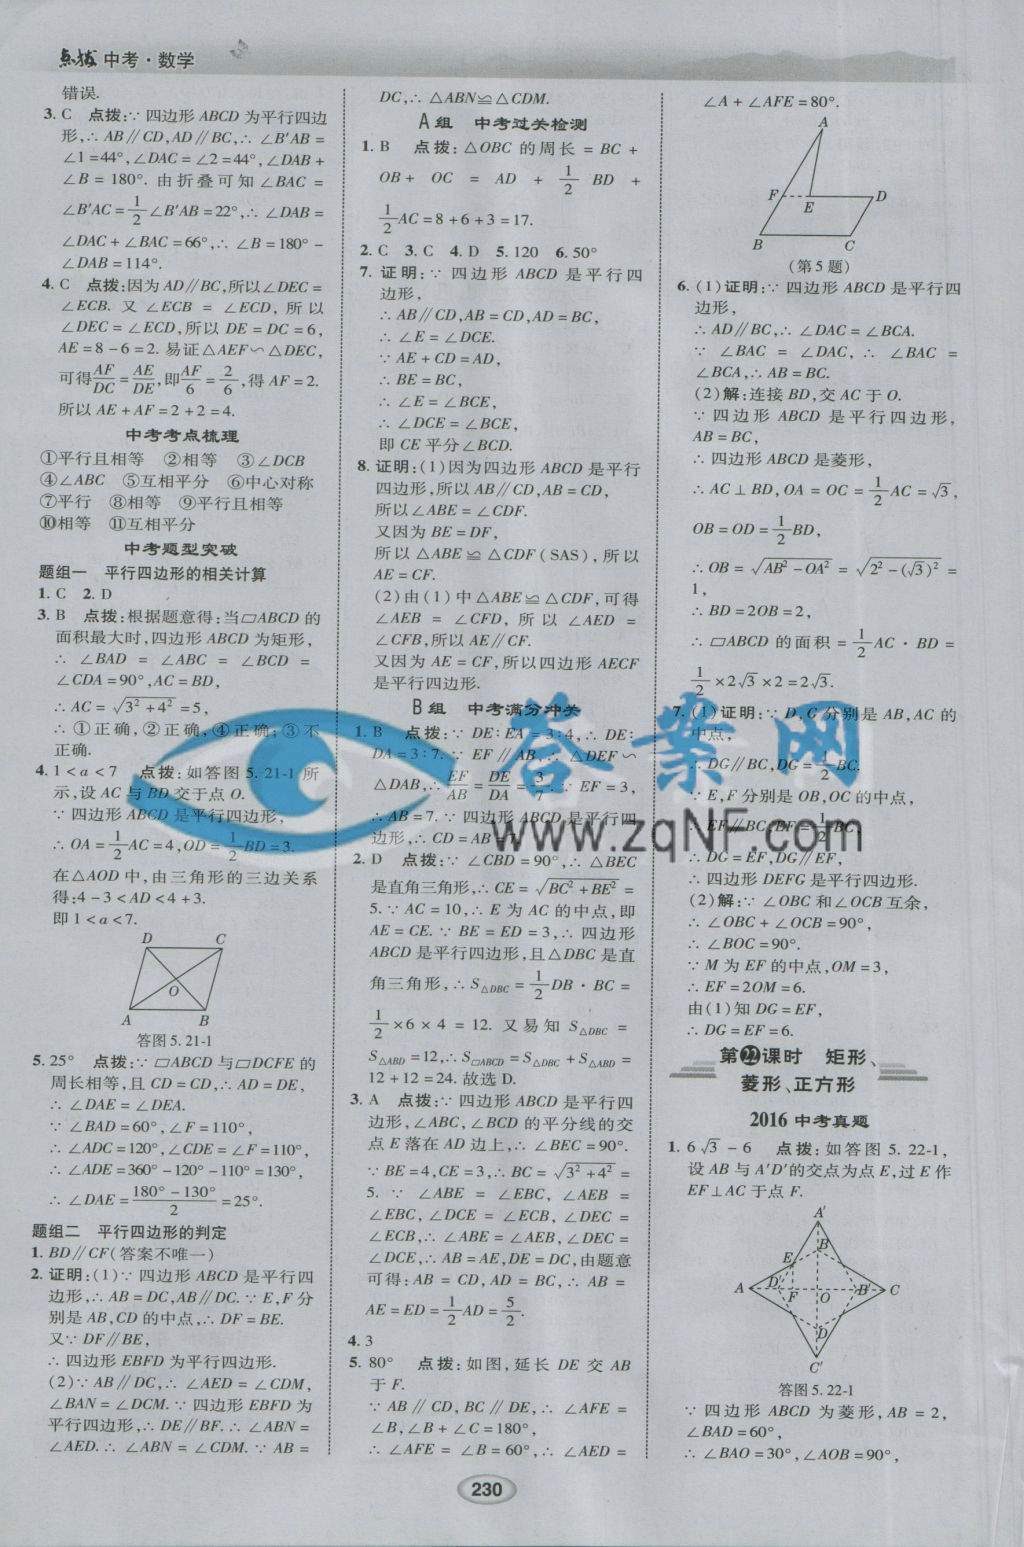 点拨 中考·数学
错误.
3. C 点拨:∵ 四边形 ABCD 为平行四边
形,∴ AB∥CD,AD∥BC,∴ ∠B′AB=
∠1=44°,∠DAC=∠2=44°,∠DAB+
∠B=180°. 由折叠可知∠BAC=
∠B′AC=1/2∠B′AB=22°,∴ ∠DAB=
∠DAC+∠BAC=66°,∴ ∠B=180°-
∠DAB=114°.
4. C 点拨:因为 AD∥BC,所以∠DEC=
∠ECB. 又 ∠ECB=∠ECD, 所以
∠DEC=∠ECD,所以 DE=DC=6,
AE=8-6=2. 易证△AEF∽△DEC,
可得AF/DC=AE/DE,即AF/6=2/6,得 AF=2.
所以 AE+AF=2+2=4.
中考考点梳理
①平行且相等 ②相等 ③∠DCB
④∠ABC ⑤互相平分 ⑥中心对称
⑦平行 ⑧相等 ⑨平行且相等
⑩相等 ⑪互相平分
中考题型突破
题组一 平行四边形的相关计算
1. C 2. D
3. B 点拨:根据题意得:当▱ABCD 的
面积最大时,四边形 ABCD 为矩形,
∴ ∠BAD=∠ABC=∠BCD=
∠CDA=90°,AC=BD,
∴ AC=√(3²+4²)=5,
∴ ①正确,②正确,④正确;③不
正确.
4. 1<a<7 点拨:如答图 5. 21-1 所
示,设 AC 与 BD 交于点 O.
∵ 四边形 ABCD 是平行四边形,
∴ OA=1/2AC=4,OD=1/2BD=3.
在△AOD 中,由三角形的三边关系
得:4-3<AD<4+3.
即 1<a<7.
D C
O
A B
答图 5. 21-1
5. 25° 点拨:∵ ▱ABCD 与▱DCFE 的
周长相等,且 CD=CD,∴ AD=DE,
∴ ∠DAE=∠DEA.
∵ ∠BAD=60°,∠F=110°,
∴ ∠ADC=120°,∠CDE=∠F=110°,
∴ ∠ADE=360°-120°-110°=130°,
∴ ∠DAE=(180°-130°)/2=25°.
题组二 平行四边形的判定
1. BD∥CF(答案不唯一)
2. 证明:(1)∵ 四边形 ABCD 是平行四
边形,∴ AB=DC,AB∥DC. ∵ E,F 分
别是 AB,CD 的中点,∴ DF=BE.
又∵ DF∥BE,
∴ 四边形 EBFD 为平行四边形.
(2)∵ AB∥DC,∴ ∠AED=∠CDM,
∠BAN=∠DCM. ∵ 四边形 EBFD 为
平行四边形,∴ DE∥BF. ∴ ∠ABN=
∠AED. ∴ ∠ABN=∠CDM. ∵ AB=
DC,∴ △ABN≌△CDM.
A 组 中考过关检测
1. B 点拨:△OBC 的周长=BC+
OB+OC=AD+1/2BD+
1/2AC=8+6+3=17.
2. C 3. C 4. D 5. 120 6. 50°
7. 证明:∵ 四边形 ABCD 是平行四
边形,
∴ AB∥CD,AB=CD,AD=BC,
∴ ∠E=∠DCE.
∵ AE+CD=AD,
∴ BE=BC,
∴ ∠E=∠BCE,
∴ ∠DCE=∠BCE,
即 CE 平分∠BCD.
8. 证明:(1)因为四边形 ABCD 是平行
四边形,所以 AB∥CD,AB=CD,
所以∠ABE=∠CDF.
又因为 BE=DF,
所以△ABE≌△CDF(SAS),所以
AE=CF.
(2)由(1)中△ABE≌△CDF,可得
∠AEB=∠CFD, 所以∠AED=
∠CFB,所以 AE∥CF.
又因为 AE=CF,所以四边形 AECF
是平行四边形.
B 组 中考满分冲关
1. B 点拨:∵ DE:EA=3:4,∴ DE:
DA=3:7. ∵ EF∥AB,∴ △DEF∽
△DAB,∴EF/AB=DE/DA=3/7. ∵ EF=3,
∴ AB=7. ∵ 四边形 ABCD 是平行四
边形,∴ CD=AB=7.
2. D 点拨:∵ ∠CBD=90°,∴ △BEC
是直角三角形,∴ CE=√(BC²+BE²)=
5. ∵ AC=10,∴ E 为 AC 的中点,即
AE=CE. ∵ BE=ED=3,∴ 四边形
ABCD 是平行四边形,且△DBC 是直
角三角形,∴ S△DBC=1/2DB·BC=
1/2×6×4=12. 又易知 S△DBC=
S△ABD=12,∴ S▱ABCD=S△DBC+S△ABD=
12+12=24. 故选 D.
3. A 点拨:∵ 四边形 ABCD 是平行四
边形,∠ABC,∠BCD 的平分线的交
点 E 落在 AD 边上,∴ ∠BEC=90°.
∵ BE=4,CE=3,∴ BC=√(3²+4²)=
5. ∵ ∠ABE=∠EBC,∠AEB=
∠EBC,∠DCE=∠ECB,∠DEC=
∠ECB,∴ ∠ABE=∠AEB,∠DEC=
∠DCE,∴ AB=AE,DE=DC,由题意
可得:AB=CD,AD=BC,∴ AB=
AE=ED=1/2AD=5/2.
4. 3
5. 80° 点拨:如图,延长 DE 交 AB
于 F.
∵ AB∥CD,BC∥DE,∴ ∠AFE=
∠B,∠B+∠C=180°,
∴ ∠AFE=∠B=60°,∴ ∠AED=
∠A+∠AFE=80°.
A
F E D
B C
(第 5 题)
6. (1)证明:∵ 四边形 ABCD 是平行四
边形,
∴ AD∥BC,∴ ∠DAC=∠BCA.
∵ ∠BAC=∠DAC,∴ ∠BAC=
∠BCA,∴ AB=BC.
(2)解:连接 BD,交 AC 于 O.
∵ 四边形 ABCD 是平行四边形,
AB=BC,
∴ 四边形 ABCD 是菱形,
∴ AC⊥BD,OA=OC=1/2AC=√3,
OB=OD=1/2BD,
∴ OB=√(AB²-OA²)=√(2²-(√3)²)=
1,
∴ BD=2OB=2,
∴ ▱ABCD 的面积=1/2AC·BD=
1/2×2√3×2=2√3.
7. (1)证明:∵ D,G 分别是 AB,AC 的
中点,
∴ DG∥BC,DG=1/2BC.
∵ E,F 分别是 OB,OC 的中点,
∴ EF∥BC,EF=1/2BC,
∴ DG=EF,DG∥EF,
∴ 四边形 DEFG 是平行四边形.
(2)解:∵ ∠OBC 和∠OCB 互余,
∴ ∠OBC+∠OCB=90°,
∴ ∠BOC=90°.
∵ M 为 EF 的中点,OM=3,
∴ EF=2OM=6.
由(1)知 DG=EF,
∴ DG=EF=6.
第22课时 矩形、
菱形、正方形
2016 中考真题
1. 6√3-6 点拨:如答图 5. 22-1,
设 AB 与 A′D′的交点为点 E,过 E 作
EF⊥AC 于点 F.
A′
E B
A D′ F O B′ C
D
C′
答图 5. 22-1
∵ 四边形 ABCD 为菱形,AB=2,
∠BAD=60°,
∴ ∠BAO=30°,∠AOB=90°,
230
答案网
www.zqNF.com